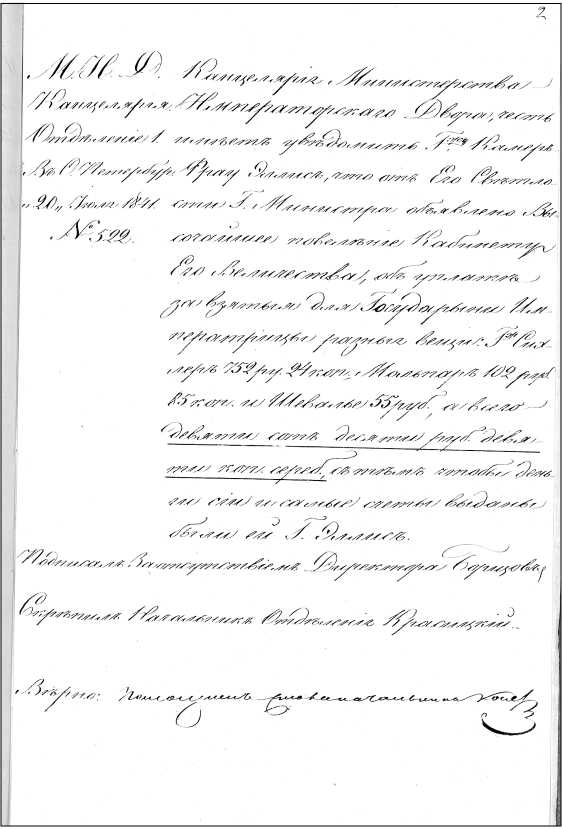 2
М. И. Д. Канцелярія Министерства
Канцелярія Императорскаго Двора, честь
Отдѣленіе 1. имѣетъ увѣдомить Гжу Камеръ
Въ С. Петербур. Фрау Эллисъ, что отъ Его Свѣтло-
„20„ Іюля 1841. сти Г. Министра объявлено Вы-
№ 522. сочайшее повелѣніе Кабинету
Его Величества, объ уплатѣ
за взятыя для Государыни Им-
ператрицы разныя вещи: Гжѣ Сих-
леръ 752 ру. 24 коп., Мальпаръ 102 руб.
85 коп. и Шевалье 55 руб., а всего
девяти сотъ десяти руб. девя-
ти коп. сереб., съ тѣмъ чтобы день-
ги сіи и самые счеты выданы
были ей Г. Эллисъ.
Подписалъ За отсутствіемъ Директора Борисовъ
Скрѣпилъ Начальникъ Отдѣленія Красицкій.
Вѣрно: Помощникъ столоначальника